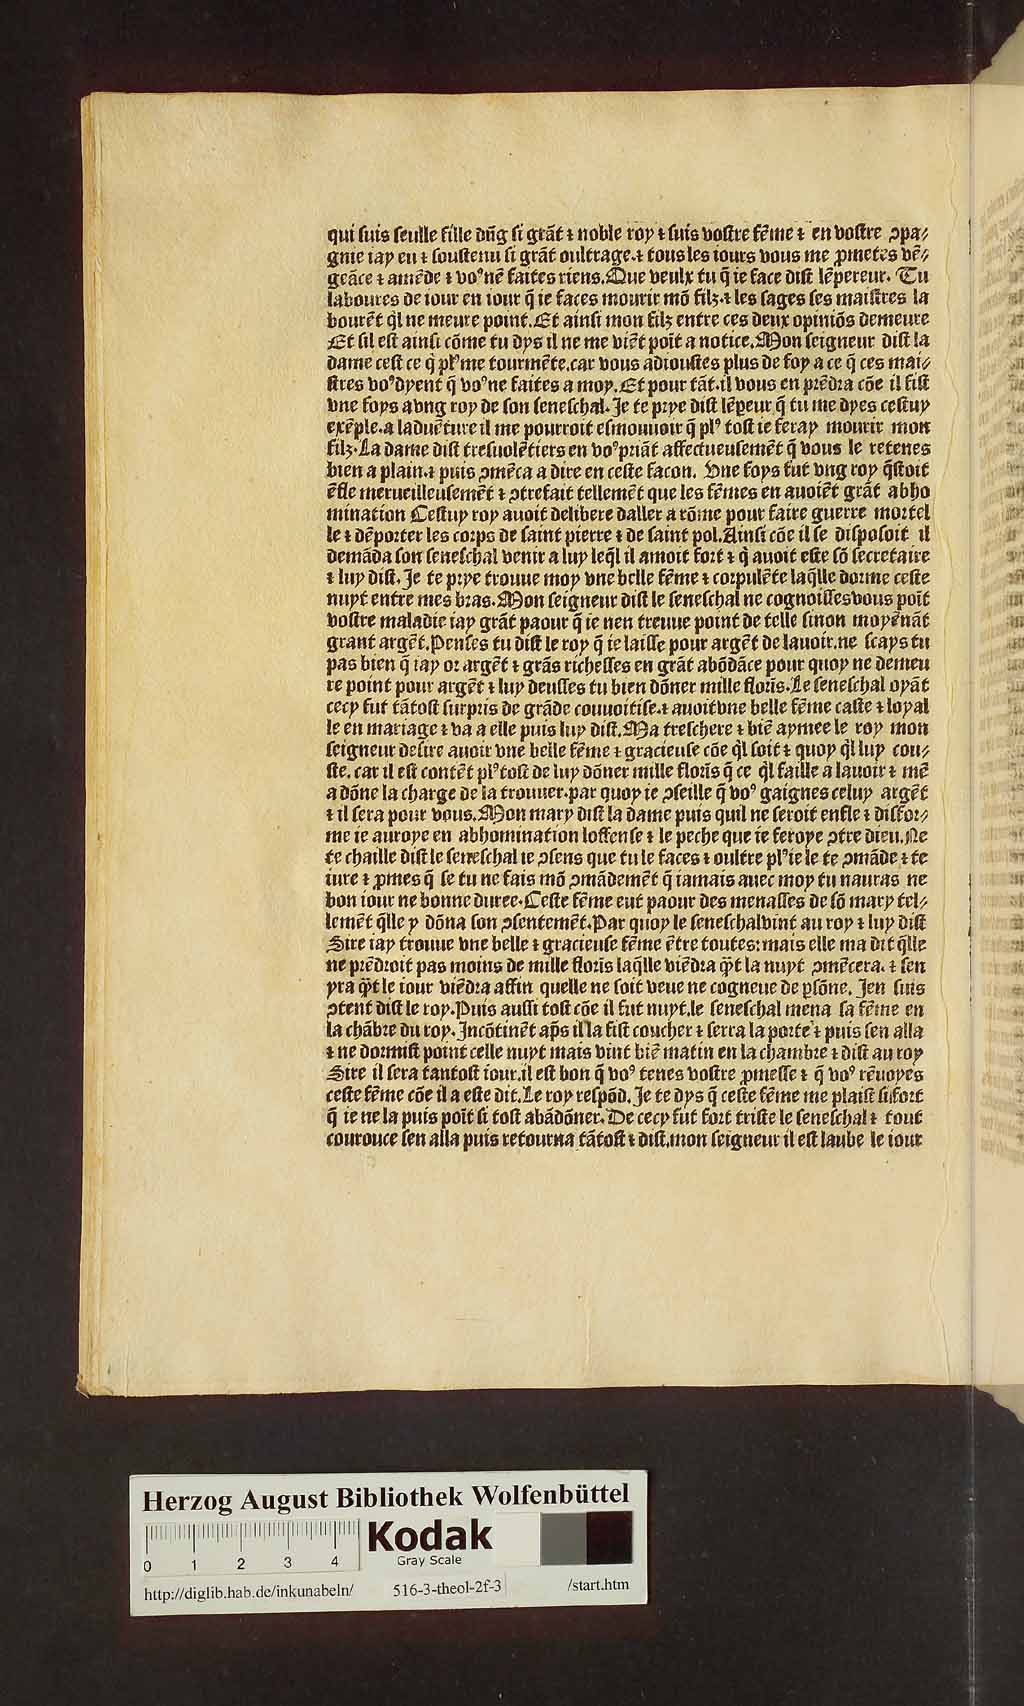 qui suis seulle fille dũg si grãt ⁊ noble roy ⁊ suis vostre fẽme ⁊ en vostre ꝯpa⸗
gnie iay eu ⁊ soustenu si grãt oultrage.⁊ tous les iours vous me ꝓmetes vẽ⸗
geãce ⁊ amẽde ⁊ voꝰ nẽ faites riens.Que veulx tu q̃ ie face dist lẽpereur. Tu
laboures de iour en iour q̃ ie faces mourir mõ filz.⁊ les sages ses maistres la
bourẽt q̃l ne meure point.Et ainsi mon filz entre ces deux opiniõs demeure
Et sil est ainsi cõme tu dys il ne me viẽt poĩt a notice.Mon seigneur dist la
dame cest ce q̃ plꝰ me tourmẽte.car vous adioustes plus de foy a ce q̃ ces mai⸗
stres voꝰ dyent q̃ voꝰ ne faites a moy.Et pour tãt.il vous en prẽdra cõe il fist
vne foys a vng roy de son seneschal.Je te prye dist lẽpeur q̃ tu me dyes cestuy
exẽple.a laduẽture il me pourroit esmouuoir q̃ plꝰ tost ie feray mourir mon
filz.La dame dist tresuolẽtiers en voꝰ priãt affectueusemẽt q̃ vous le retenes
bien a plain.⁊ puis ꝯmẽca a dire en ceste facon. Vne foys fut vng roy q̃stoit
ẽfle merueilleusemẽt ⁊ ꝯtrefait tellemẽt que les fẽmes en auoiẽt grãt abho
mination Cestuy roy auoit delibere daller a rõme pour faire guerre mortel
le ⁊ dẽporter les corps de saint pierre ⁊ de saint pol.Ainsi cõe il se disposoit il
demãda son seneschal venir a luy leq̃l il amoit fort ⁊ q̃ auoit este sõ secretaire
⁊ luy dist. Je te prye trouue moy vne belle fẽme ⁊ corpulẽte laq̃lle dorme ceste
nuyt entre mes bras.Mon seigneur dist le seneschal ne cognoisses vous poĩt
vostre maladie iay grãt paour q̃ ie nen treuue point de telle sinon moyẽnãt
grant argẽt.Penses tu dist le roy q̃ ie laisse pour argẽt de lauoir.ne scays tu
pas bien q̃ iay or argẽt ⁊ grãs richesses en grãt abõdãce pour quoy ne demeu
re point pour argẽt ⁊ luy deusses tu bien dõner mille florĩs.Le seneschal oyãt
cecy fut tãtost surpris de grãde couuoitise.⁊ auoit vne belle fẽme caste ⁊ loyal
le en mariage ⁊ va a elle puis luy dist.Ma treschere ⁊ biẽ aymee le roy mon
seigneur desire auoir vne belle fẽme ⁊ gracieuse cõe q̃l soit ⁊ quoy q̃l luy cou⸗
ste. car il est contẽt plꝰ tost de luy dõner mille florĩs q̃ ce q̃l faille a lauoir ⁊ mẽ
a dõne la charge de la trouuer.par quoy ie ꝯseille q̃ voꝰ gaignes celuy argẽt
⁊ il sera pour vous.Mon mary dist la dame puis quil ne seroit enfle ⁊ disfor⸗
me ie auroye en abhomination loffense ⁊ le peche que ie feroye ꝯtre dieu.Ne
te chaille dist le seneschal ie ꝯsens que tu le faces ⁊ oultre plꝰ ie le te ꝯmãde ⁊ te
iure ⁊ ꝓmes q̃ se tu ne fais mõ ꝯmãdemẽt q̃ iamais auec moy tu nauras ne
bon iour ne bonne duree.Ceste fẽme eut paour des menasses de sõ mary tel⸗
lemẽt q̃lle y dõna son ꝯsentemẽt.Par quoy le seneschal vint au roy ⁊ luy dist
Sire iay trouue vne belle ⁊ gracieuse fẽme ẽtre toutes: mais elle ma dit q̃lle
ne prẽdroit pas moins de mille florĩs laq̃lle viẽdra q̃t la nuyt ꝯmẽcera. ⁊ sen
yra q̃t le iour viẽdra affin quelle ne soit veue ne cogneue de ꝑsõne. Jen suis
ꝯtent dist le roy.Puis aussi tost cõe il fut nuyt.le seneschal mena sa fẽme en
la chãbre du roy.Incõtinẽt ap̃s il la fist coucher ⁊ serra la porte ⁊ puis sen alla
⁊ ne dormist point celle nuyt mais vint biẽ matin en la chambre ⁊ dist au roy
Sire il sera tantost iour.il est bon q̃ voꝰ tenes vostre ꝓmesse ⁊ q̃ voꝰ rẽuoyes
ceste fẽme cõe il a este dit.Le roy respõd. Je te dys q̃ ceste fẽme me plaist si fort
q̃ ie ne la puis poĩt si tost abãdõner.De cecy fut fort triste le seneschal ⁊ tout
courouce sen alla puis retourna tãtost ⁊ dist.mon seigneur il est laube le iour
Herzog August Bibliothek Wolfenbüttel
0 1 2 3 4
Kodak
Gray Scale
http://diglib.hab.de/inkunabeln/ 516-3-theol-2f-3 /start.htm